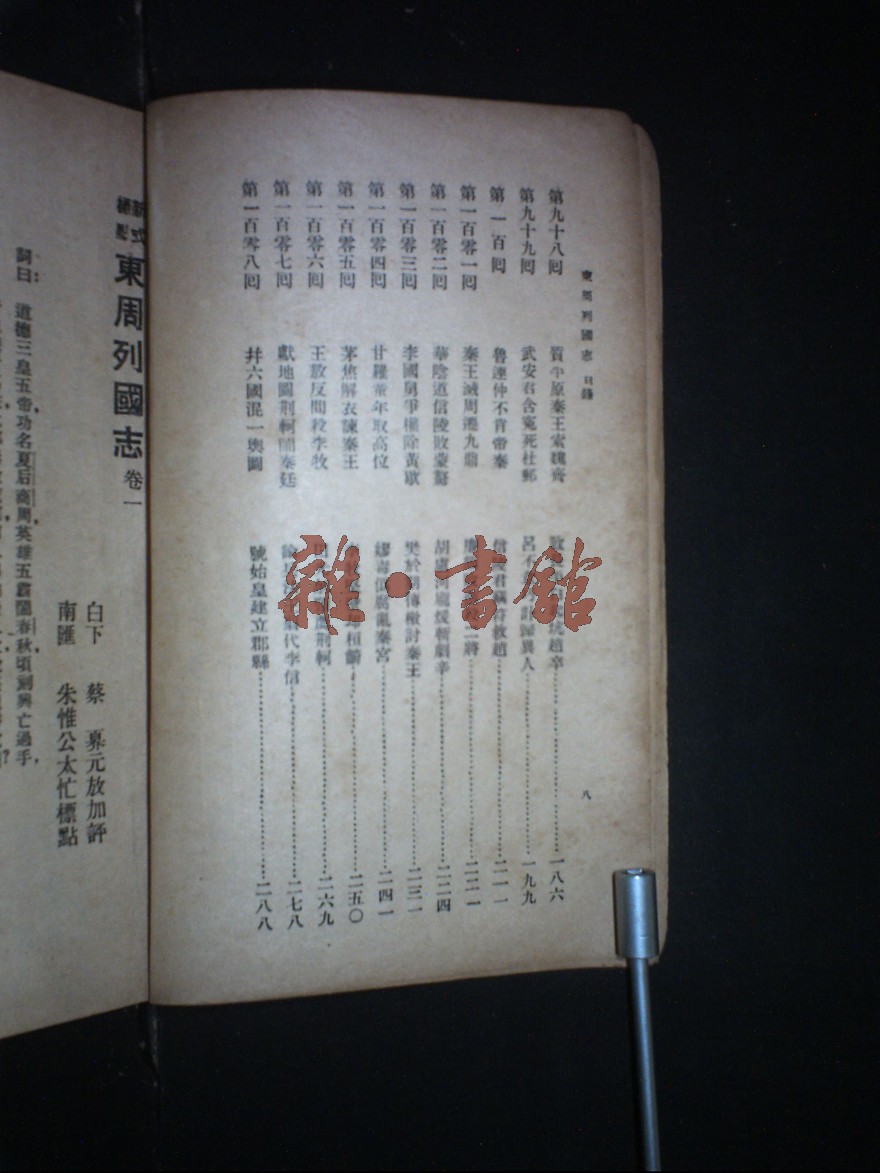 東周列國志 目錄
八
第九十八囘 質平原秦王索魏齊 一八六
第九十九囘 武安君含寃死杜郵 呂不韋 計歸異人 一九九
第一百囘 魯連仲不肯帝秦 信 君 救趙 二一一
第一百零一囘 秦王滅周遷九鼎 二將
第一百零二囘 華陰道信陵敗蒙驁 胡盧 龐煖斬劇辛 二二四
第一百零三囘 李國舅爭權除黃歇 樊於 傳檄討秦王 二三一
第一百零四囘 甘羅童年取高位 亂秦宮 二四一
第一百零五囘 茅焦解衣諫秦王 桓齮 二五〇
第一百零六囘 王敖反間殺李牧 荆軻 二六九
第一百零七囘 獻地圖荆軻鬧秦廷 代李信 二七八
第一百零八囘 幷六國混一輿圖 號始皇建立郡縣 二八八
雜·書館
新式標點 東周列國志 卷一
白下 蔡 元放加評
南匯 朱惟公太忙標點
詞曰 道德三皇五帝,功名夏后商周,英雄五霸鬧春秋,頃刻興亡過手,